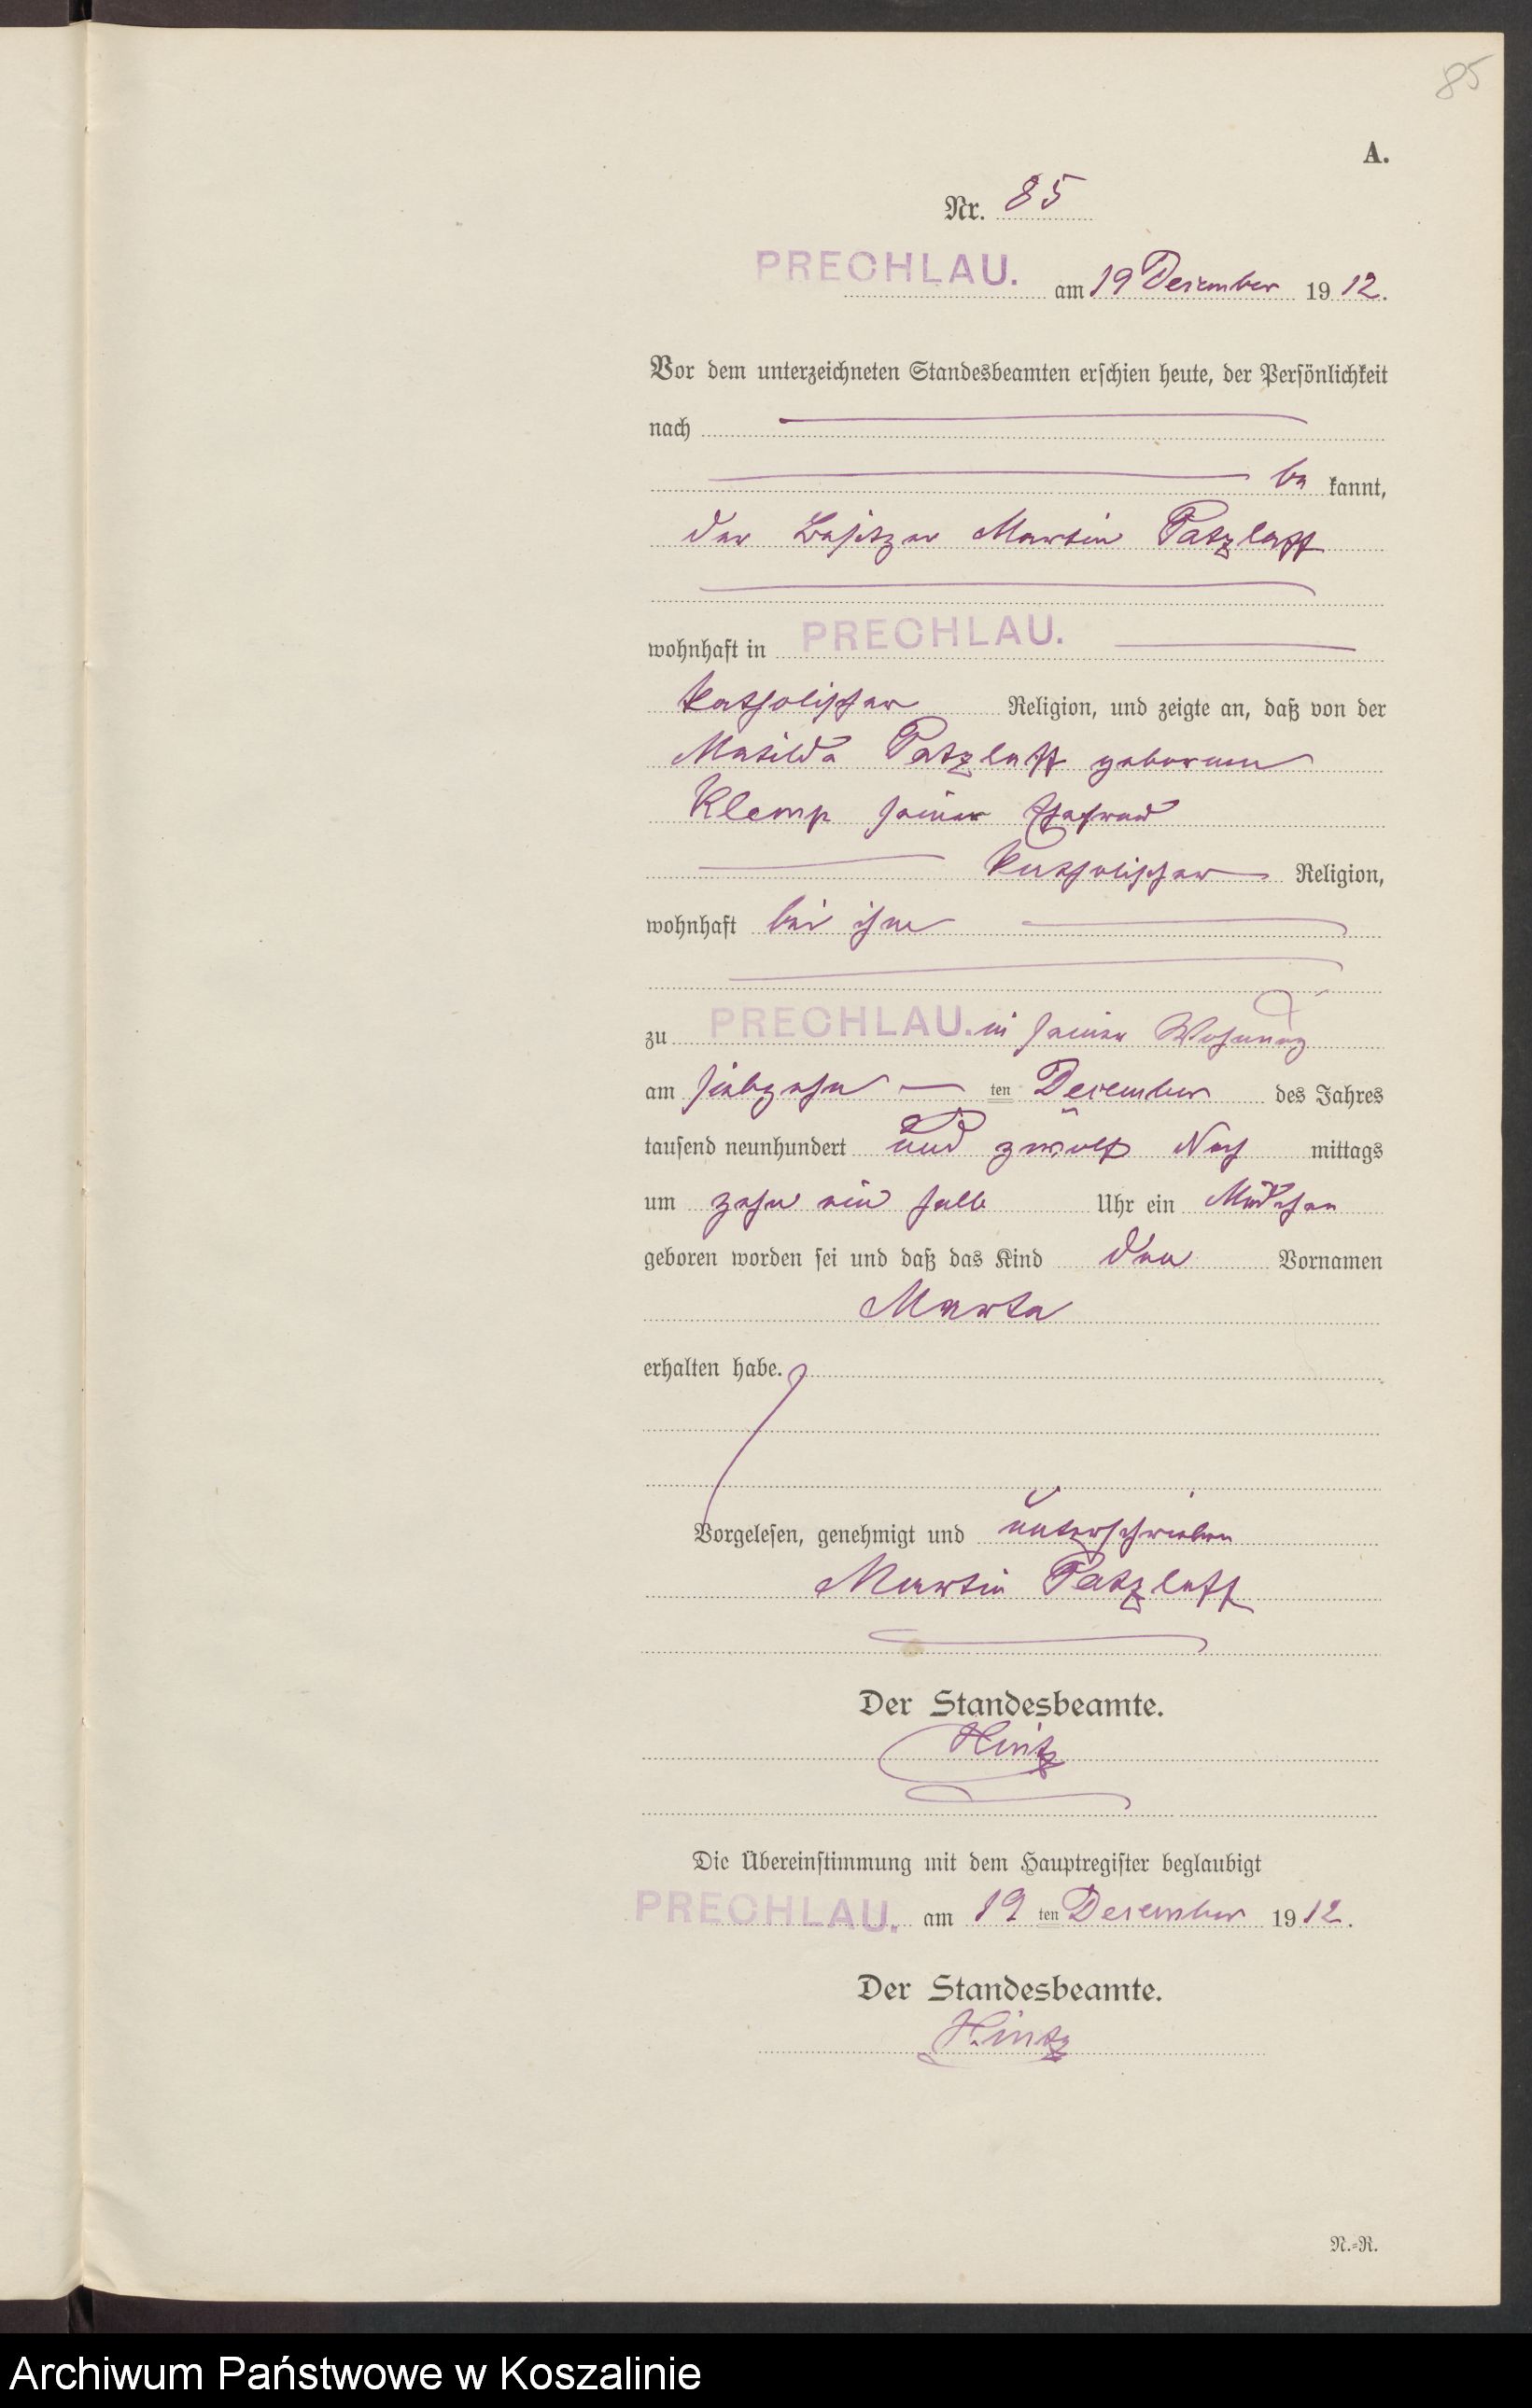 85
A.
Nr. 85
PRECHLAU. am 19 Dezember 1912.
Vor dem unterzeichneten Standesbeamten erschien heute, der Persönlichkeit
nach
be kannt,
der Besitzer Martin Patzlaff
wohnhaft in PRECHLAU.
katholischer Religion, und zeigte an, daß von der
Matilda Patzlaff geborenen
Klemp seiner Ehefrau
katholischer Religion,
wohnhaft bei ihm
zu PRECHLAU. in seiner Wohnung
am siebzehn ten Dezember des Jahres
tausend neunhundert und zwölf Nach mittags
um zehn ein halb Uhr ein Mädchen
geboren worden sei und daß das Kind den Vornamen
Marta
erhalten habe.
Vorgelesen, genehmigt und unterschrieben
Martin Patzlaff
Der Standesbeamte.
Hintz
Die Übereinstimmung mit dem Hauptregister beglaubigt
PRECHLAU. am 19 ten Dezember 1912.
Der Standesbeamte.
Hintz
N.=R.
Archiwum Państwowe w Koszalinie